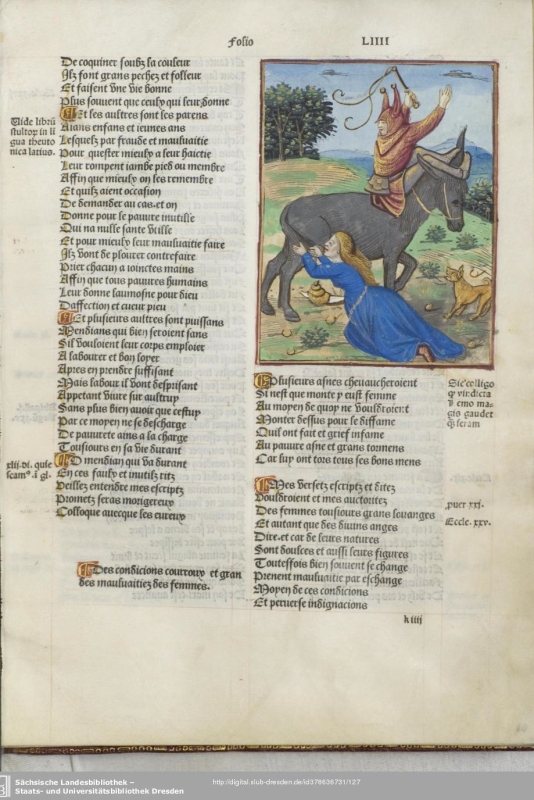 Folio LIIII
De coquiner soubz la couleur
Ilz font grans pechez et folleur
Et faisent vne vie bonne
Plus souuent que ceulx qui leur donne
Et les aultres sont les parens
Aians enfans et ieunes ans
Lesquelz par fraude et mauluaitie
Pour quester mieulx a leur haictie
Leur rompent iambe pied ou membre
Affin que mieulx on les remembre
Et quilz aient occasion
De demander au cas. et on
Donne pour le pauure inutille
Qui na nulle sante vtille
Et pour mieulx leur mauluaitie faire
Ilz vont de plourer contrefaire
Prier chacun a ioinctes mains
Affin que tous pauures humains
Leur donne laumosne pour dieu
Daffection et cueur pieu
Et plusieurs aultres sont puissans
Mendians qui bien seroient sans
Sil vouloient leur corps emploier
A labourer et bon loyer
Apres en prendre suffisant
Mais labour il vont desprisant
Appetant viure sur aultruy
Sans plus bien auoir que cestuy
Par ce moyen ne se descharge
De pauurete ains a la charge
Tousiours en sa vie durant
O mendian qui va durant
En ces faulx et inutilz ritz
Veillez entendre mes escriptz
Prometz seras morigereux
Colloque auecque les eureux
Des condicions courroux et gran
des mauluaitiez des femmes.
Vide librū
stultor in li
gua theuto
nica latius.
xlii. di. quie
scam⁹. i gl.
Plusieurs asnes cheuaucheroient
Si nest que monte y eust femme
Au moyen de quoy ne vouldroient
Monter dessus pour le diffame
Quil ont fait et grief infame
Au pauure asne et grans tonnens
Car luy ont tors tous ses bons mens
Mes versetz escriptz et ditez
Vouldroient et mes auctoritez
Des femmes tousiours grans louanges
Et autant que des diuins anges
Dire. et car de leurs natures
Sont doulces et aussi leurs figures
Toutesfois bien souuent se change
Prenent mauluaitie par eschange
Moyen de ces condicions
Et peruerse indignacions
k iiii
gis gaudet
puer xxi.
Eccle. xxv.
Sächsische Landesbibliothek –
Staats- und Universitätsbibliothek Dresden
http://digital.slub-dresden.de/id378636731/127